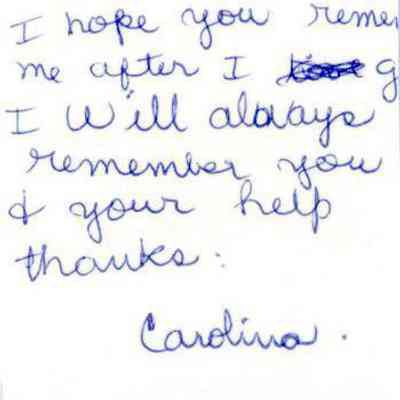 I hope you reme
me after I g
I will always
remember you
& your help
thanks.
Carolina.